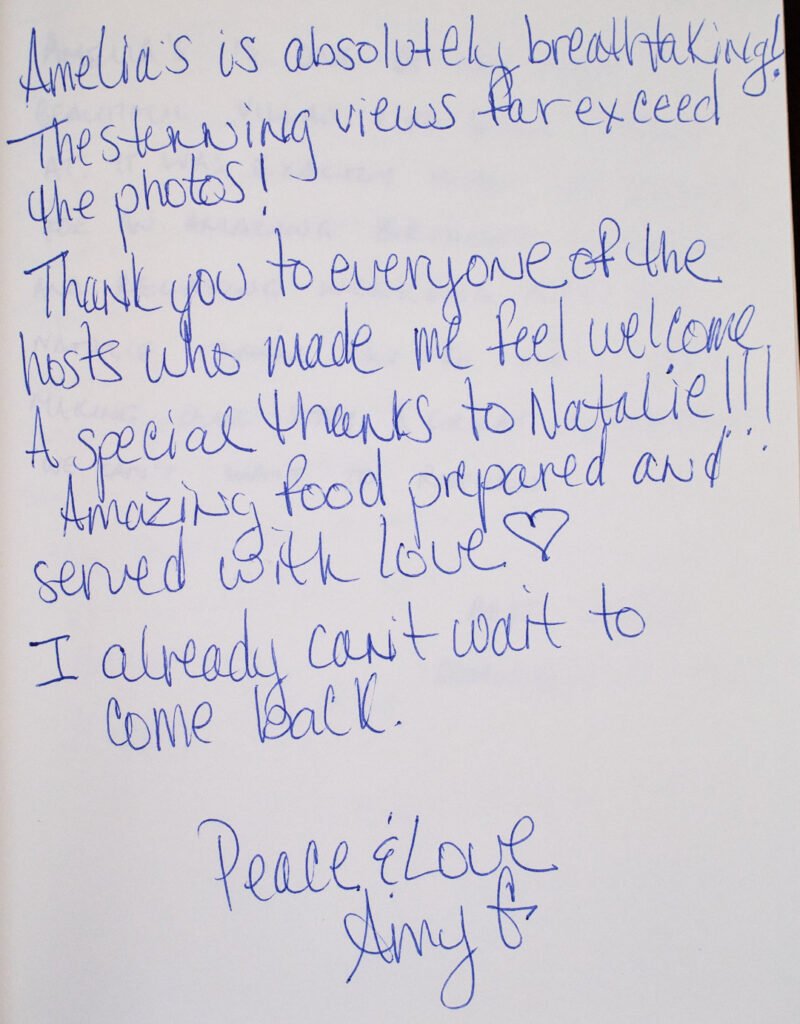 Amelia's is absolutely breathtaking!
The stunning views far exceed
the photos!
Thank you to everyone of the
hosts who made me feel welcome.
A special thanks to Natalie!!!
Amazing food prepared and
served with love ♡
I already can't wait to
come back.
Peace & Love
Amy G